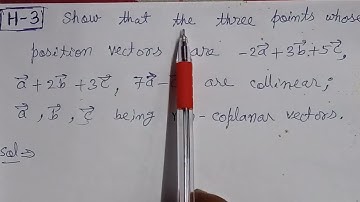 H-3 Show that the three points whose
position vectors are -2a⃗+3b⃗+5c⃗,
a⃗+2b⃗+3c⃗, 7a⃗- are collinear;
a⃗, b⃗, c⃗ being -coplanar vectors.
Sol→